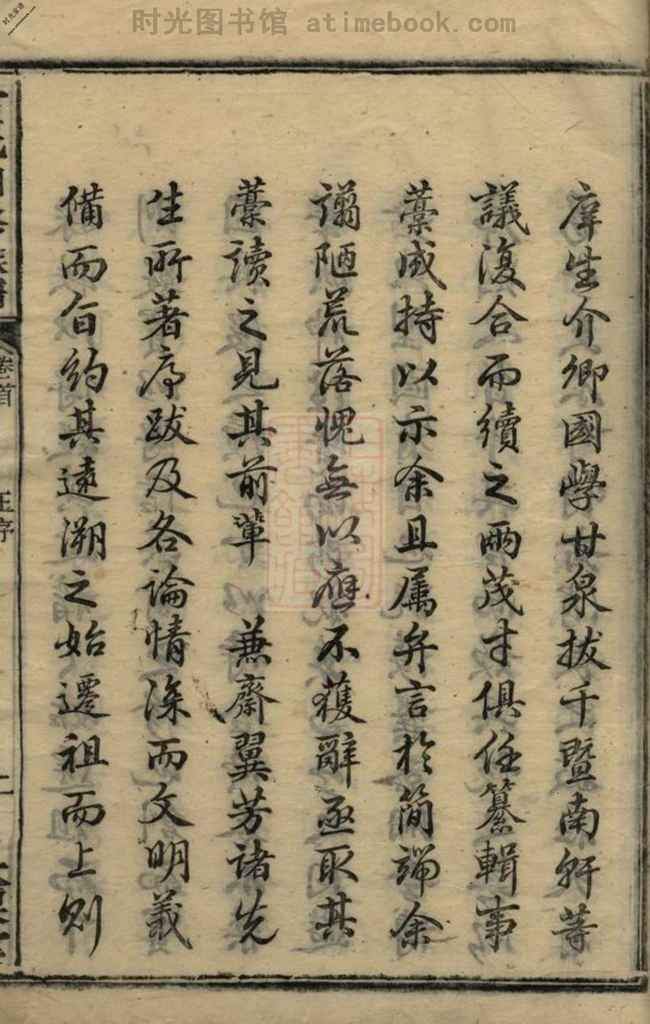 时光图书馆 - atimebook.com
庠生介卿國學甘泉拔千暨南軒等
議復合而續之兩茂才俱任纂輯事
藁成持以示余且属弁言於簡端余
謭陋荒落愧無以應不獲辭亟取其
藁讀之見其前輩 蒹齋翼芳諸先
生所著序跋及各論情深而文明義
備而旨約其遠溯之始遷祖而上則
卷首
王序